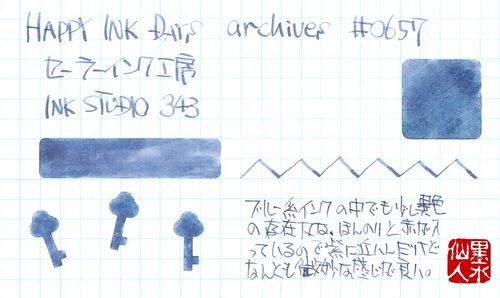 HAPPY INK DAYS archives #0657
セーラーインク工房
INK STUDIO 343
ブルー系インクの中でも少し異色
の存在だな。ほんのりと赤が入
っているので紫に近いんだけど
なんとも微妙な感じで良い。
墨水
仙人